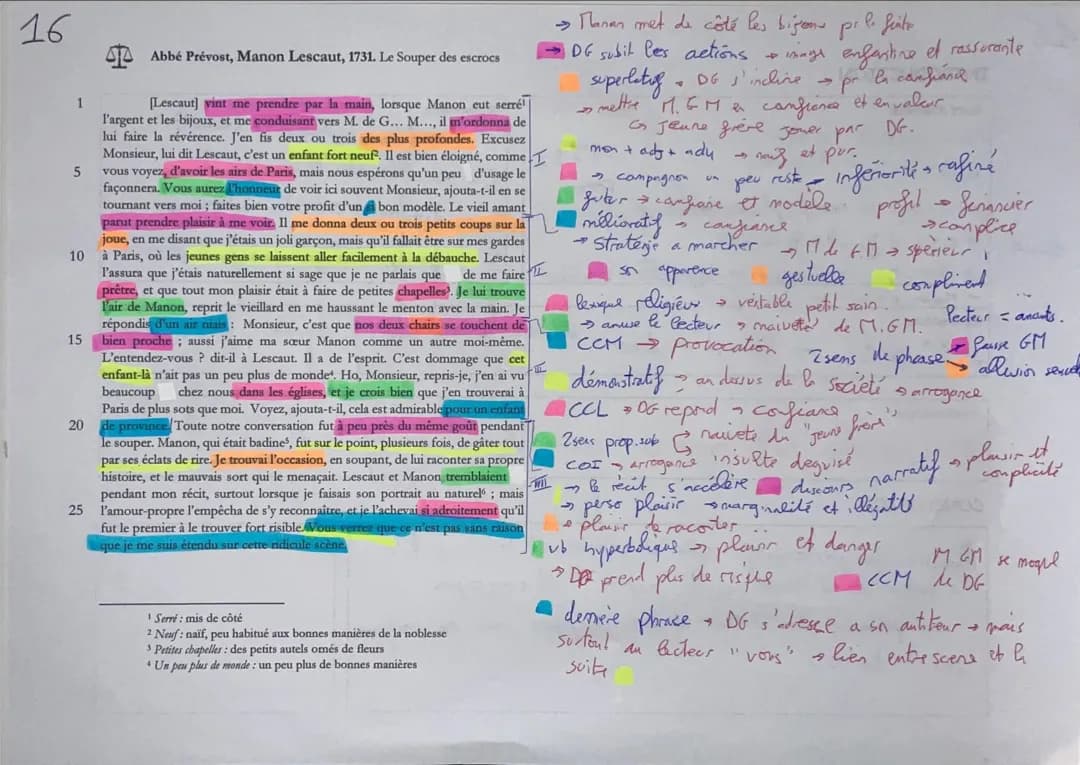 16
Abbé Prévost, Manon Lescaut, 1731. Le Souper des escrocs
1 [Lescaut] vint me prendre par la main, lorsque Manon eut serré¹
l'argent et les bijoux, et me conduisant vers M. de G... M..., il m'ordonna de
lui faire la révérence. J'en fis deux ou trois des plus profondes. Excusez
Monsieur, lui dit Lescaut, c'est un enfant fort neuf². Il est bien éloigné, comme
5 vous voyez, d'avoir les airs de Paris, mais nous espérons qu'un peu d'usage le
façonnera. Vous aurez l'honneur de voir ici souvent Monsieur, ajouta-t-il en se
tournant vers moi ; faites bien votre profit d'un si bon modèle. Le vieil amant
parut prendre plaisir à me voir. Il me donna deux ou trois petits coups sur la
joue, en me disant que j'étais un joli garçon, mais qu'il fallait être sur mes gardes
10 à Paris, où les jeunes gens se laissent aller facilement à la débauche. Lescaut
l'assura que j'étais naturellement si sage que je ne parlais que de me faire
prêtre, et que tout mon plaisir était à faire de petites chapelles³. Je lui trouve
l'air de Manon, reprit le vieillard en me haussant le menton avec la main. Je
répondis d'un air niais : Monsieur, c'est que nos deux chairs se touchent de
15 bien proche ; aussi j'aime ma sœur Manon comme un autre moi-même.
L'entendez-vous ? dit-il à Lescaut. Il a de l'esprit. C'est dommage que cet
enfant-là n'ait pas un peu plus de monde⁴. Ho, Monsieur, repris-je, j'en ai vu
beaucoup chez nous dans les églises, et je crois bien que j'en trouverai à
Paris de plus sots que moi. Voyez, ajouta-t-il, cela est admirable pour un enfant
20 de province. Toute notre conversation fut à peu près du même goût pendant
le souper. Manon, qui était badine⁵, fut sur le point, plusieurs fois, de gâter tout
par ses éclats de rire. Je trouvai l'occasion, en soupant, de lui raconter sa propre
histoire, et le mauvais sort qui le menaçait. Lescaut et Manon tremblaient
pendant mon récit, surtout lorsque je faisais son portrait au naturel⁶ ; mais
25 l'amour-propre l'empêcha de s'y reconnaître, et je l'achevai si adroitement qu'il
fut le premier à le trouver fort risible. Vous verrez que ce n'est pas sans raison
que je me suis étendu sur cette ridicule scène.
¹ Serré : mis de côté
² Neuf : naïf, peu habitué aux bonnes manières de la noblesse
³ Petites chapelles : des petits autels ornés de fleurs
⁴ Un peu plus de monde : un peu plus de bonnes manières
I
II
III
→ Manon met de côté les bijoux pr la fuite
→ DG subit les actions → image enfantine et rassurante
superlatif → DG s'incline → pr la confiance
→ mettre M. GM en confiance et en valeur
↳ jeune frère jouer par DG.
mon + adj + adv → naïf et pur.
→ compagnon un peu reste → infériorité → rafiné
futur → confiance et modèle profit → financier
mélioratif → confiance → complice
→ Stratégie a marcher → M de GM → supérieur
son apparence gestuelle compliment
lexique religieux → véritable petit sain.
→ amuse le lecteur → naïveté de M. GM. lecteur = amants.
CCM → provocation 2 sens de phrase → fausse GM
→ allusion sexuel
démonstratif → au dessus de la société → arrogance
CCL → DG repond → confiance
2 sens prop. sub → naïveté du "jeune frère"
COI → arrogance insulte deguisé
→ le récit s'accélère discours narratif → plaisir et complicité
→ perso plaisir → marginalité et illégalité
→ plaisir de raconter...
vb hyperbolique → plaisir et danger
→ DG prend plus de risque CCM M GM se moque de DG
dernière phrase → DG s'adresse a son auditeur → mais
surtout au lecteur "vous" → lien entre scene et la
suite